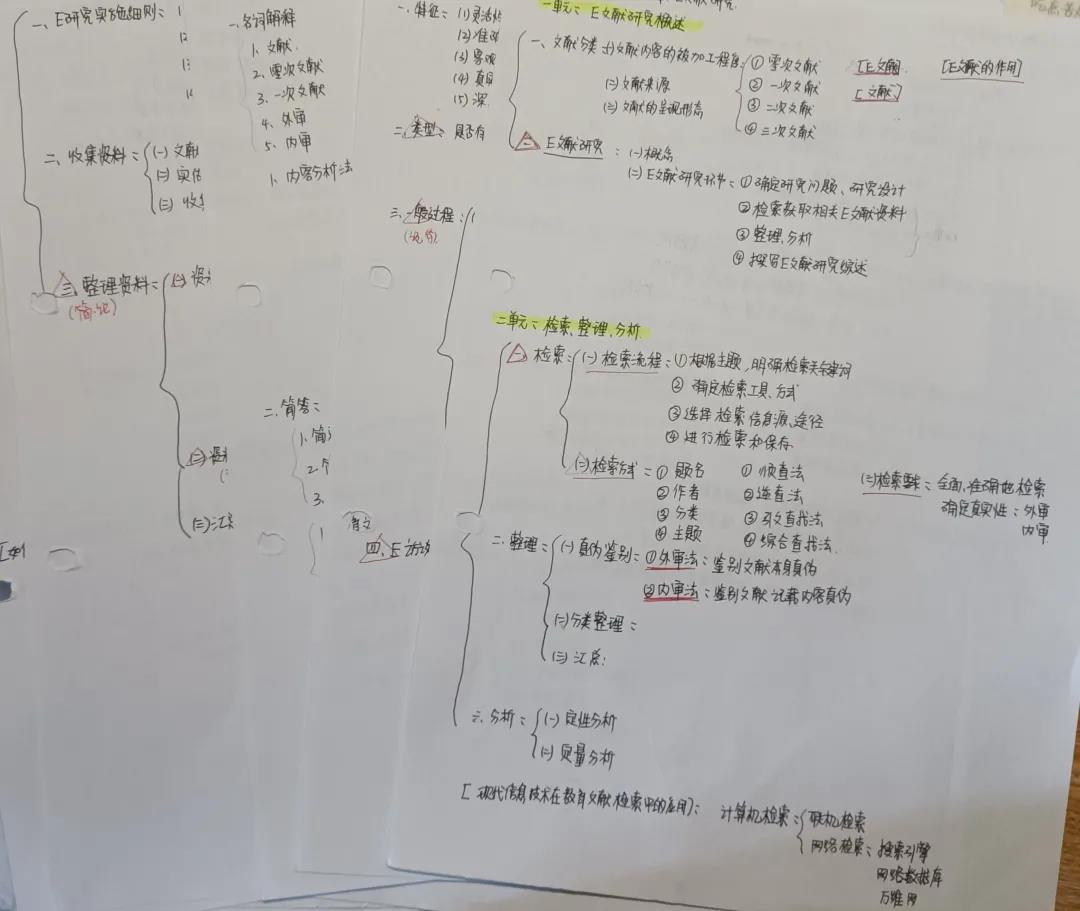 一、E研究实施细则:
二、收集资料:
(一) 文献
(二) 实
(三) 收
三 整理资料:
(一) 资
(二)
(三) 汇
一、名词解释
1. 文献
2. 零次文献
3. 一次文献
4. 外审
5. 内审
1. 内容分析法
二、简答:
1. 简
2. 个
3.
一、特征: (1) 灵活
(2) 准
(3) 客观
(4) 真
(5) 深
二、类型: 是否有
三、一般过程:
四、E
一单元: E文献研究概述
一、文献分类 (一) 文献内容的被加工程度
① 零次文献
② 一次文献
③ 二次文献
④ 三次文献
(二) 文献来源
(三) 文献的呈现形态
[文献]
[E文献的作用]
二 E文献研究: (一) 概念
(二) E文献研究环节: ① 确定研究问题、研究设计
② 检索获取相关E文献资料
③ 整理、分析
④ 撰写E文献研究综述
二单元: 检索、整理、分析
一 检索: (一) 检索流程: ① 根据主题,明确检索关键词
② 确定检索工具、方式
③ 选择检索信息源、途径
④ 进行检索和保存
(二) 检索方式: ① 题名 ① 顺查法
② 作者 ② 逆查法
③ 分类 ③ 引文查找法
④ 主题 ④ 综合查找法
(三) 检索要求: 全面、准确地检索
确定真实性: 外审
内审
二、整理: (一) 真伪鉴别: ① 外审法: 鉴别文献本身真伪
② 内审法: 鉴别文献记载内容真伪
(二) 分类整理:
(三) 汇总:
三、分析: (一) 定性分析
(二) 定量分析
[现代信息技术在教育文献检索中的应用]: 计算机检索: 联机检索
网络检索: 搜索引擎
网络数据库
万维网